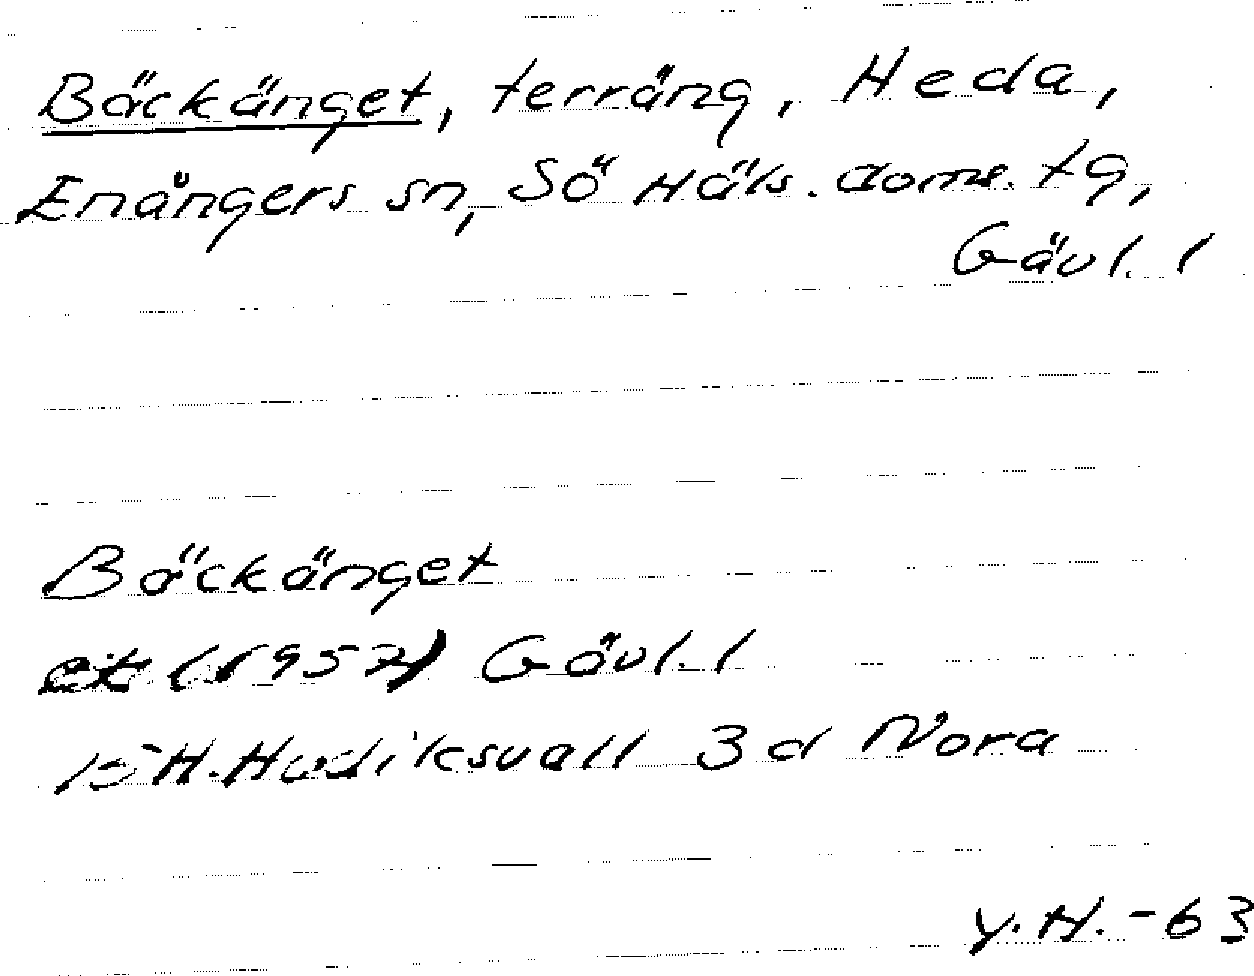 Bäckänget, terräng, Heda,
Enångers sn, Sö Häls. doms. tg,
Gävl. l
Bäckänget
ek (1957) Gävl. l
15 H. Hudiksvall 3 d Nora
y. H. - 63